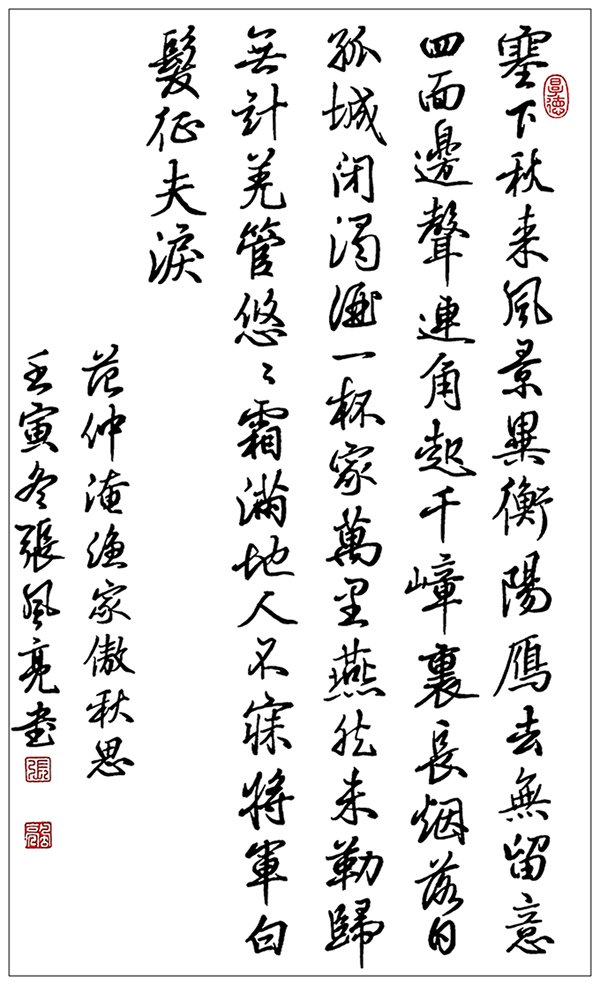 塞下秋来風景異衡陽雁去無留意
四面邊聲連角起千嶂裏長烟落日
孤城闭濁酒一杯家萬里燕然未勒歸
無計羌管悠〻霜滿地人不寐將軍白
髮征夫淚
范仲淹渔家傲秋思
壬寅冬張風亮书